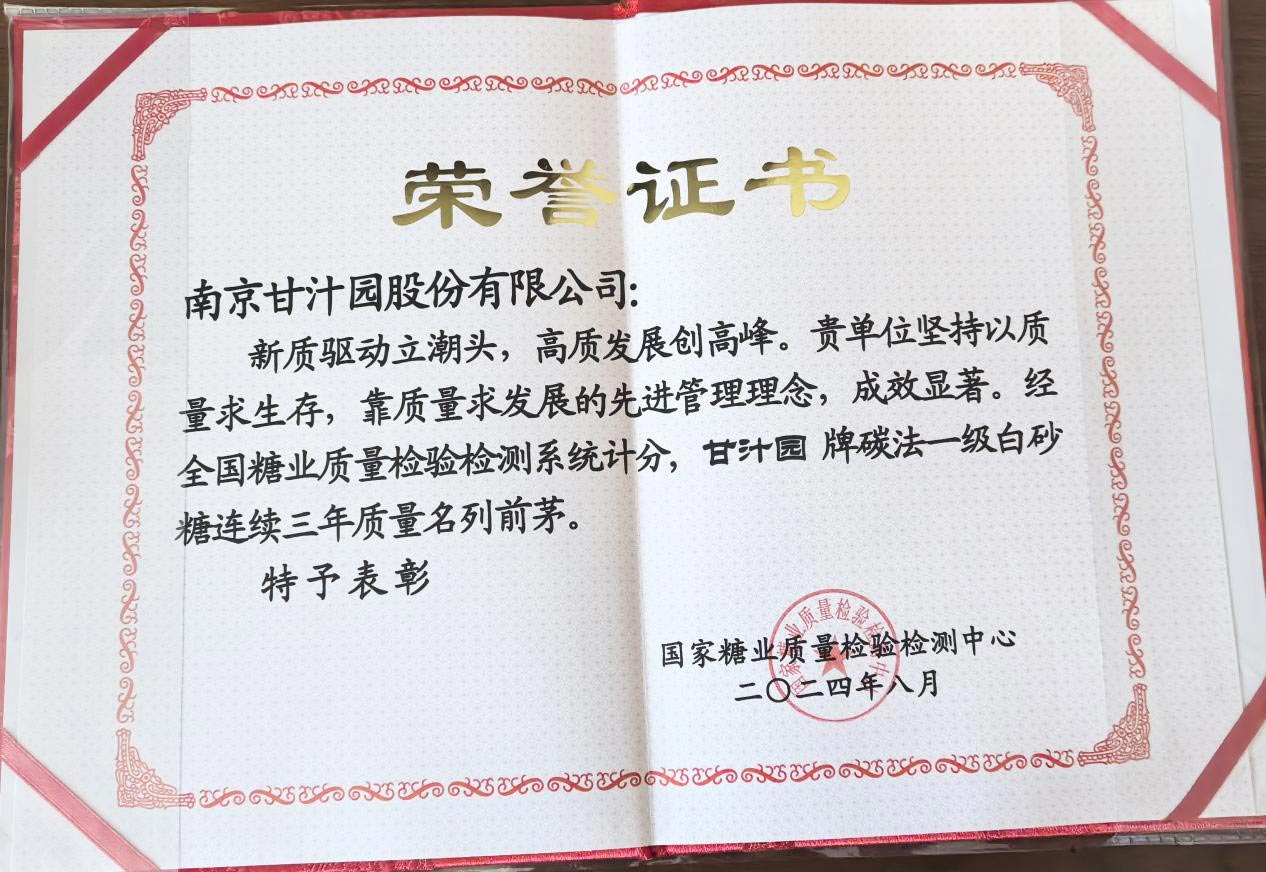 荣誉证书
南京甘汁园股份有限公司:
新质驱动立潮头，高质发展创高峰。贵单位坚持以质
量求生存，靠质量求发展的先进管理理念，成效显著。经
全国糖业质量检验检测系统计分，甘汁园 牌碳法一级白砂
糖连续三年质量名列前茅。
特予表彰
国家糖业质量检验检测中心
二〇二四年八月